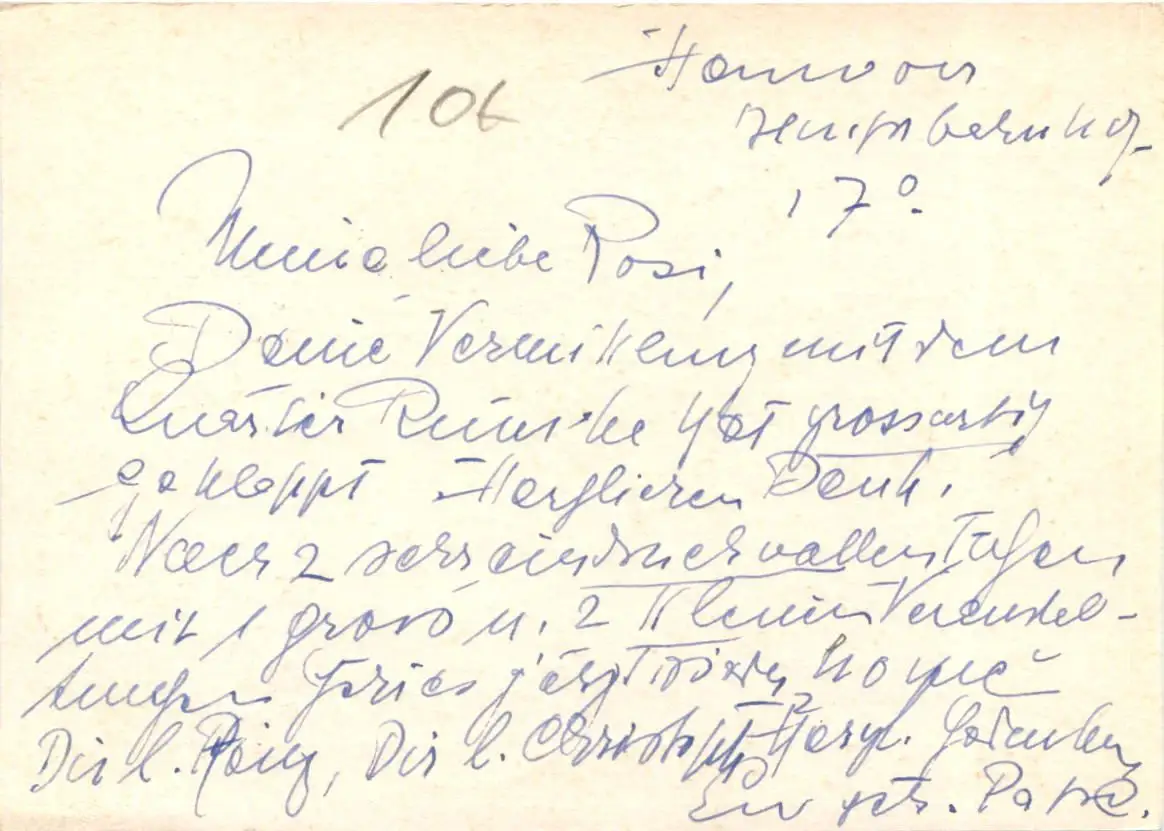 106
Hannover
Hauptbahnhof
17⁰.
Meine liebe Rosi,
Deine Vermittlung mit dem
Quartier hat grossartig
geklappt Herzlichen Dank.
Nach 2 sehr eindrucksvollen Tagen
mit 1 gross u. 2 kleinen Veranstal-
tungen jetzt wieder home
Dir l. Dir l. Christoph Herzl. Gedenken
Eu getr.